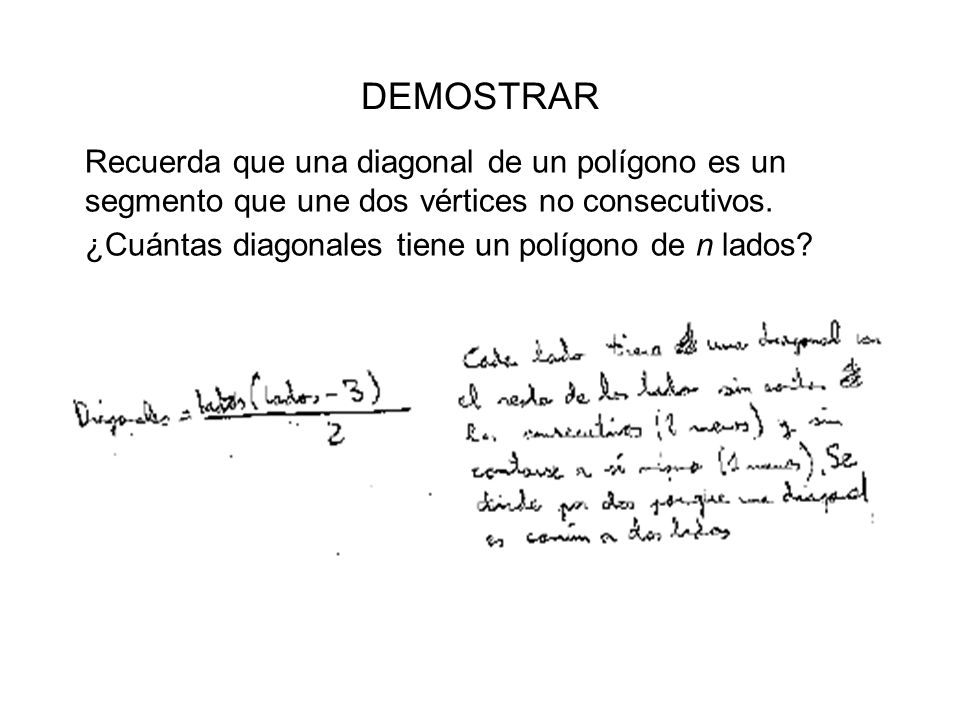 DEMOSTRAR
Recuerda que una diagonal de un polígono es un
segmento que une dos vértices no consecutivos.
¿Cuántas diagonales tiene un polígono de n lados?
Diagonales = lados (lados - 3)
2
Cada lado tiene una diagonal con
el resto de los lados sin contar
los consecutivos (2 menos) y sin
contarse a sí mismo (1 menos). Se
divide por dos porque una diagonal
es común a dos lados